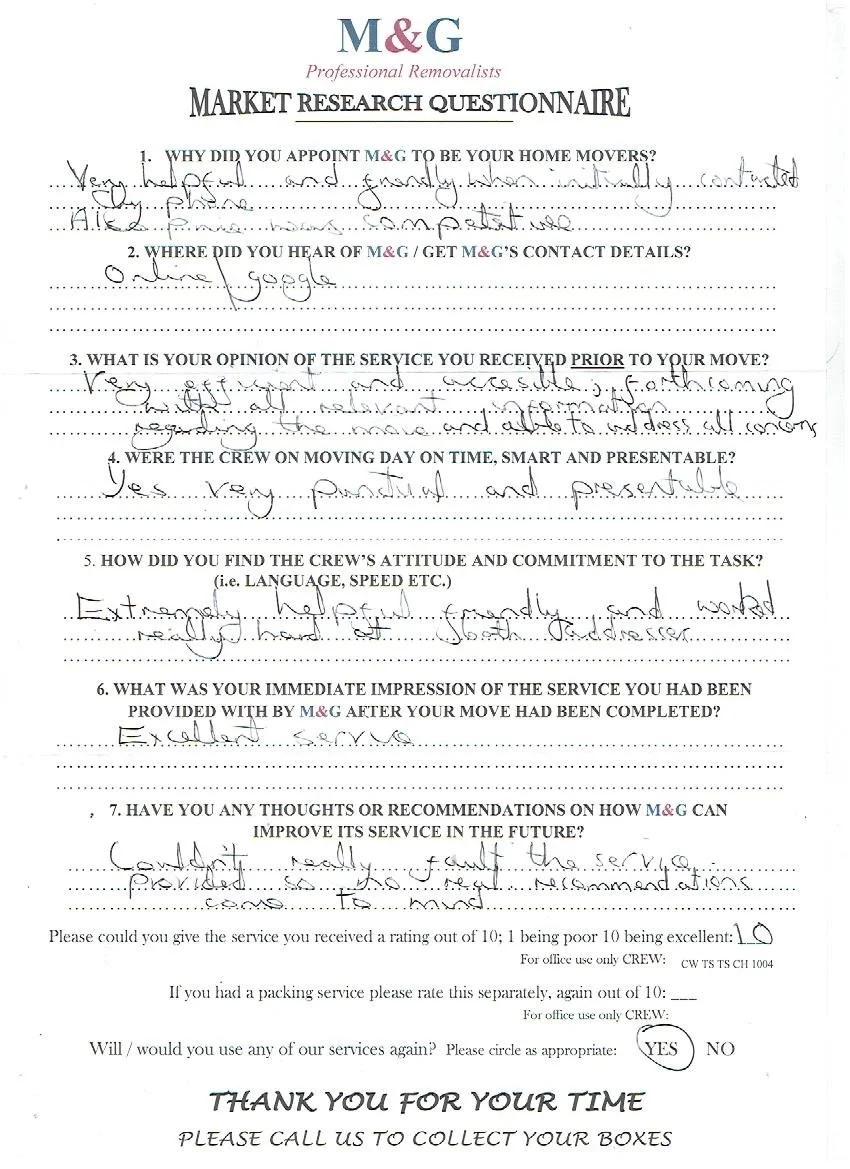 M&G
Professional Removalists
MARKET RESEARCH QUESTIONNAIRE
1. WHY DID YOU APPOINT M&G TO BE YOUR HOME MOVERS?
Very helpful and friendly when initially contacted
by phone
Also price was competative
2. WHERE DID YOU HEAR OF M&G / GET M&G'S CONTACT DETAILS?
Online / google
3. WHAT IS YOUR OPINION OF THE SERVICE YOU RECEIVED PRIOR TO YOUR MOVE?
Very efficient and accesible, forthcoming
with all relevant information
regarding the move and able to address all concerns
4. WERE THE CREW ON MOVING DAY ON TIME, SMART AND PRESENTABLE?
Yes very punctual and presentable
5. HOW DID YOU FIND THE CREW'S ATTITUDE AND COMMITMENT TO THE TASK?
(i.e. LANGUAGE, SPEED ETC.)
Extremely helpful friendly and worked
really hard at both addresses
6. WHAT WAS YOUR IMMEDIATE IMPRESSION OF THE SERVICE YOU HAD BEEN
PROVIDED WITH BY M&G AFTER YOUR MOVE HAD BEEN COMPLETED?
Excellent service
7. HAVE YOU ANY THOUGHTS OR RECOMMENDATIONS ON HOW M&G CAN
IMPROVE ITS SERVICE IN THE FUTURE?
Couldn't really fault the service
provided so no real recommendations
come to mind
Please could you give the service you received a rating out of 10; 1 being poor 10 being excellent: 10
For office use only CREW: CW TS TS CH 1004
If you had a packing service please rate this separately, again out of 10: ___
For office use only CREW:
Will / would you use any of our services again? Please circle as appropriate: YES NO
THANK YOU FOR YOUR TIME
PLEASE CALL US TO COLLECT YOUR BOXES